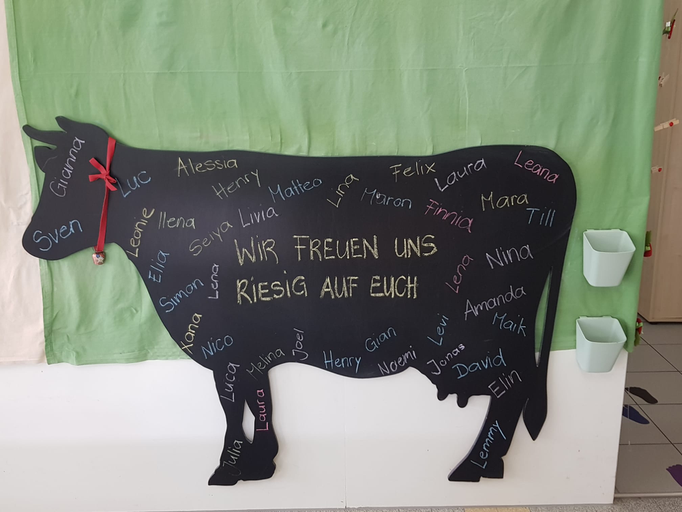 Gianna
Sven
Luc
Alessia
Henry
Matteo
Lina
Felix
Laura
Leana
Maron
Mara
Till
Finnia
Leonie
Ilena
Seiya
Livia
Elia
Simon
Lena
WIR FREUEN UNS
RIESIG AUF EUCH
Lena
Nina
Amanda
Maik
Xana
Nico
Luca
Melina
Joel
Henry
Gian
Noemi
Levi
Jonas
David
Elin
Laura
Julia
Lemmy